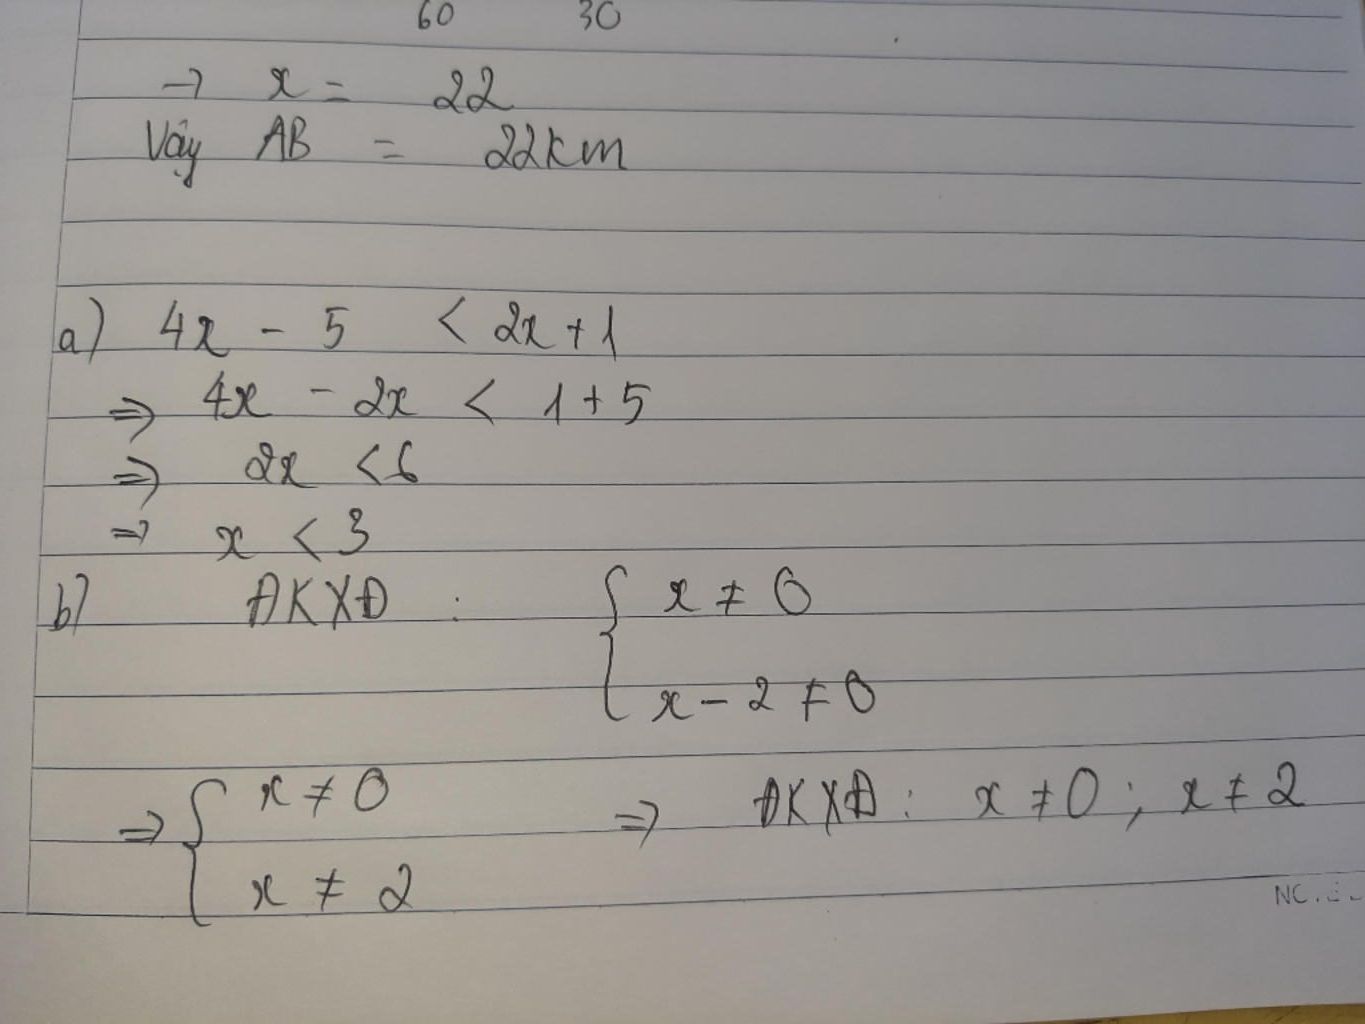 60 30
→ x = 22
Vậy AB = 22km
a) 4x - 5 < 2x + 1
⇒ 4x - 2x < 1 + 5
⇒ 2x < 6
⇒ x < 3
b) ĐKXĐ : { x ≠ 0
x - 2 ≠ 0
⇒ { x ≠ 0 ⇒ ĐKXĐ : x ≠ 0 ; x ≠ 2
x ≠ 2
NC.